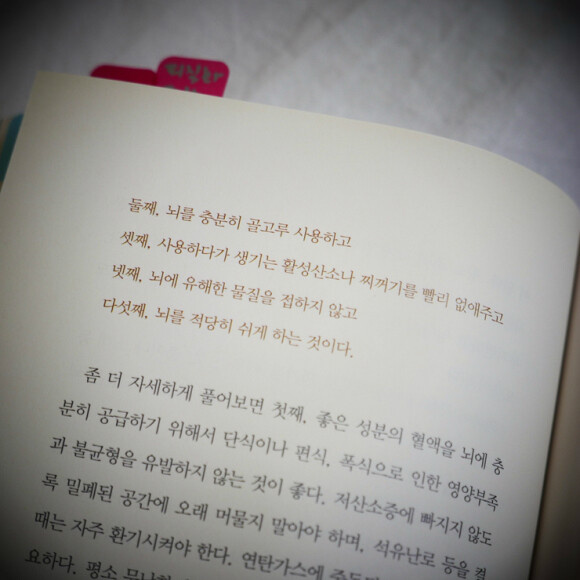 둘째, 뇌를 충분히 골고루 사용하고
셋째, 사용하다가 생기는 활성산소나 찌꺼기를 빨리 없애주고
넷째, 뇌에 유해한 물질을 접하지 않고
다섯째, 뇌를 적당히 쉬게 하는 것이다.
좀 더 자세하게 풀어보면 첫째, 좋은 성분의 혈액을 뇌에 충
분히 공급하기 위해서 단식이나 편식, 폭식으로 인한 영양부족
과 불균형을 유발하지 않는 것이 좋다. 저산소증에 빠지지 않도
록 밀폐된 공간에 오래 머물지 말아야 하며, 석유난로 등을 켤
때는 자주 환기시켜야 한다. 연탄가스에
요하다. 평소